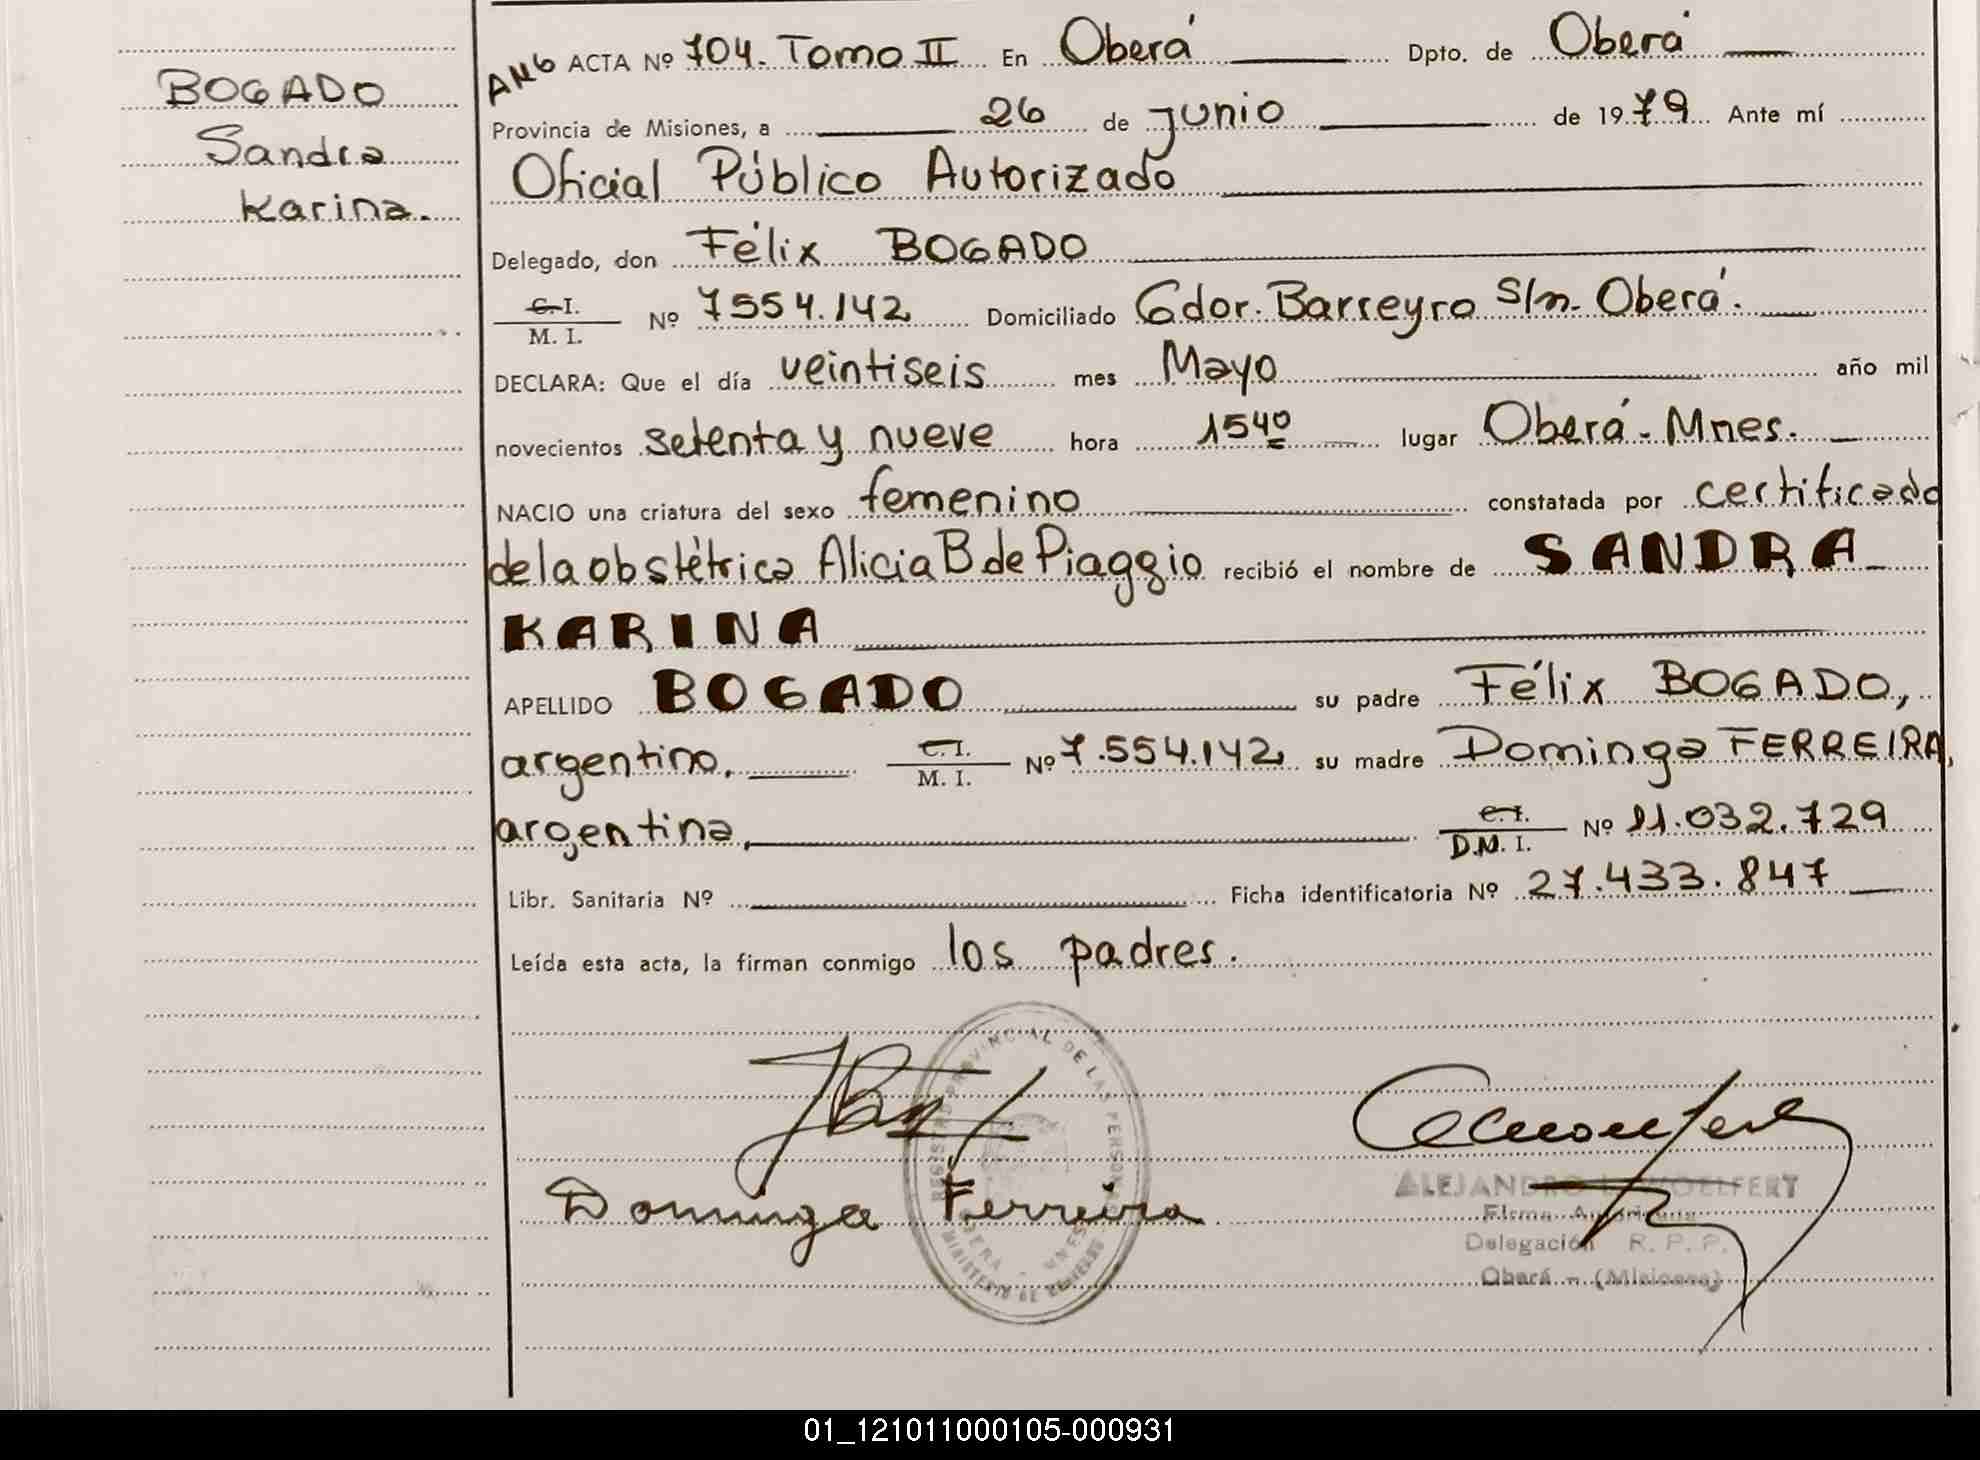 BOGADO
Sandra
Karina.
ANG ACTA Nº 704. Tomo II En Oberá Dpto. de Oberá
Provincia de Misiones, a 26 de junio de 1979 Ante mí
Oficial Público Autorizado
Delegado, don Félix BOGADO
C. I.
M. I. Nº 7554.142 Domiciliado Gdor. Barreyro S/n. Oberá.
DECLARA: Que el día veintiseis mes Mayo año mil
novecientos setenta y nueve hora 1540 lugar Oberá - Mnes.
NACIO una criatura del sexo femenino constatada por certificado
de la obstétrica Alicia B de Piaggio recibió el nombre de SANDRA
KARINA
APELLIDO BOGADO su padre Félix BOGADO,
argentino, C. I. M. I. Nº 7.554.142 su madre Dominga FERREIRA,
argentina, C. I. D.N. I. Nº 11.032.729
Libr. Sanitaria Nº Ficha identificatoria Nº 27.433.847
Leída esta acta, la firman conmigo los padres.
REGISTRO PROVINCIAL DE LAS PERSONAS
OBERA - MNES
MINISTERIO DE GOBIERNO
Dominga Ferreira
ALEJANDRO L. WOELFERT
Firma Autorizada
Delegación R. P. P.
Oberá - (Misiones)
01_121011000105-000931